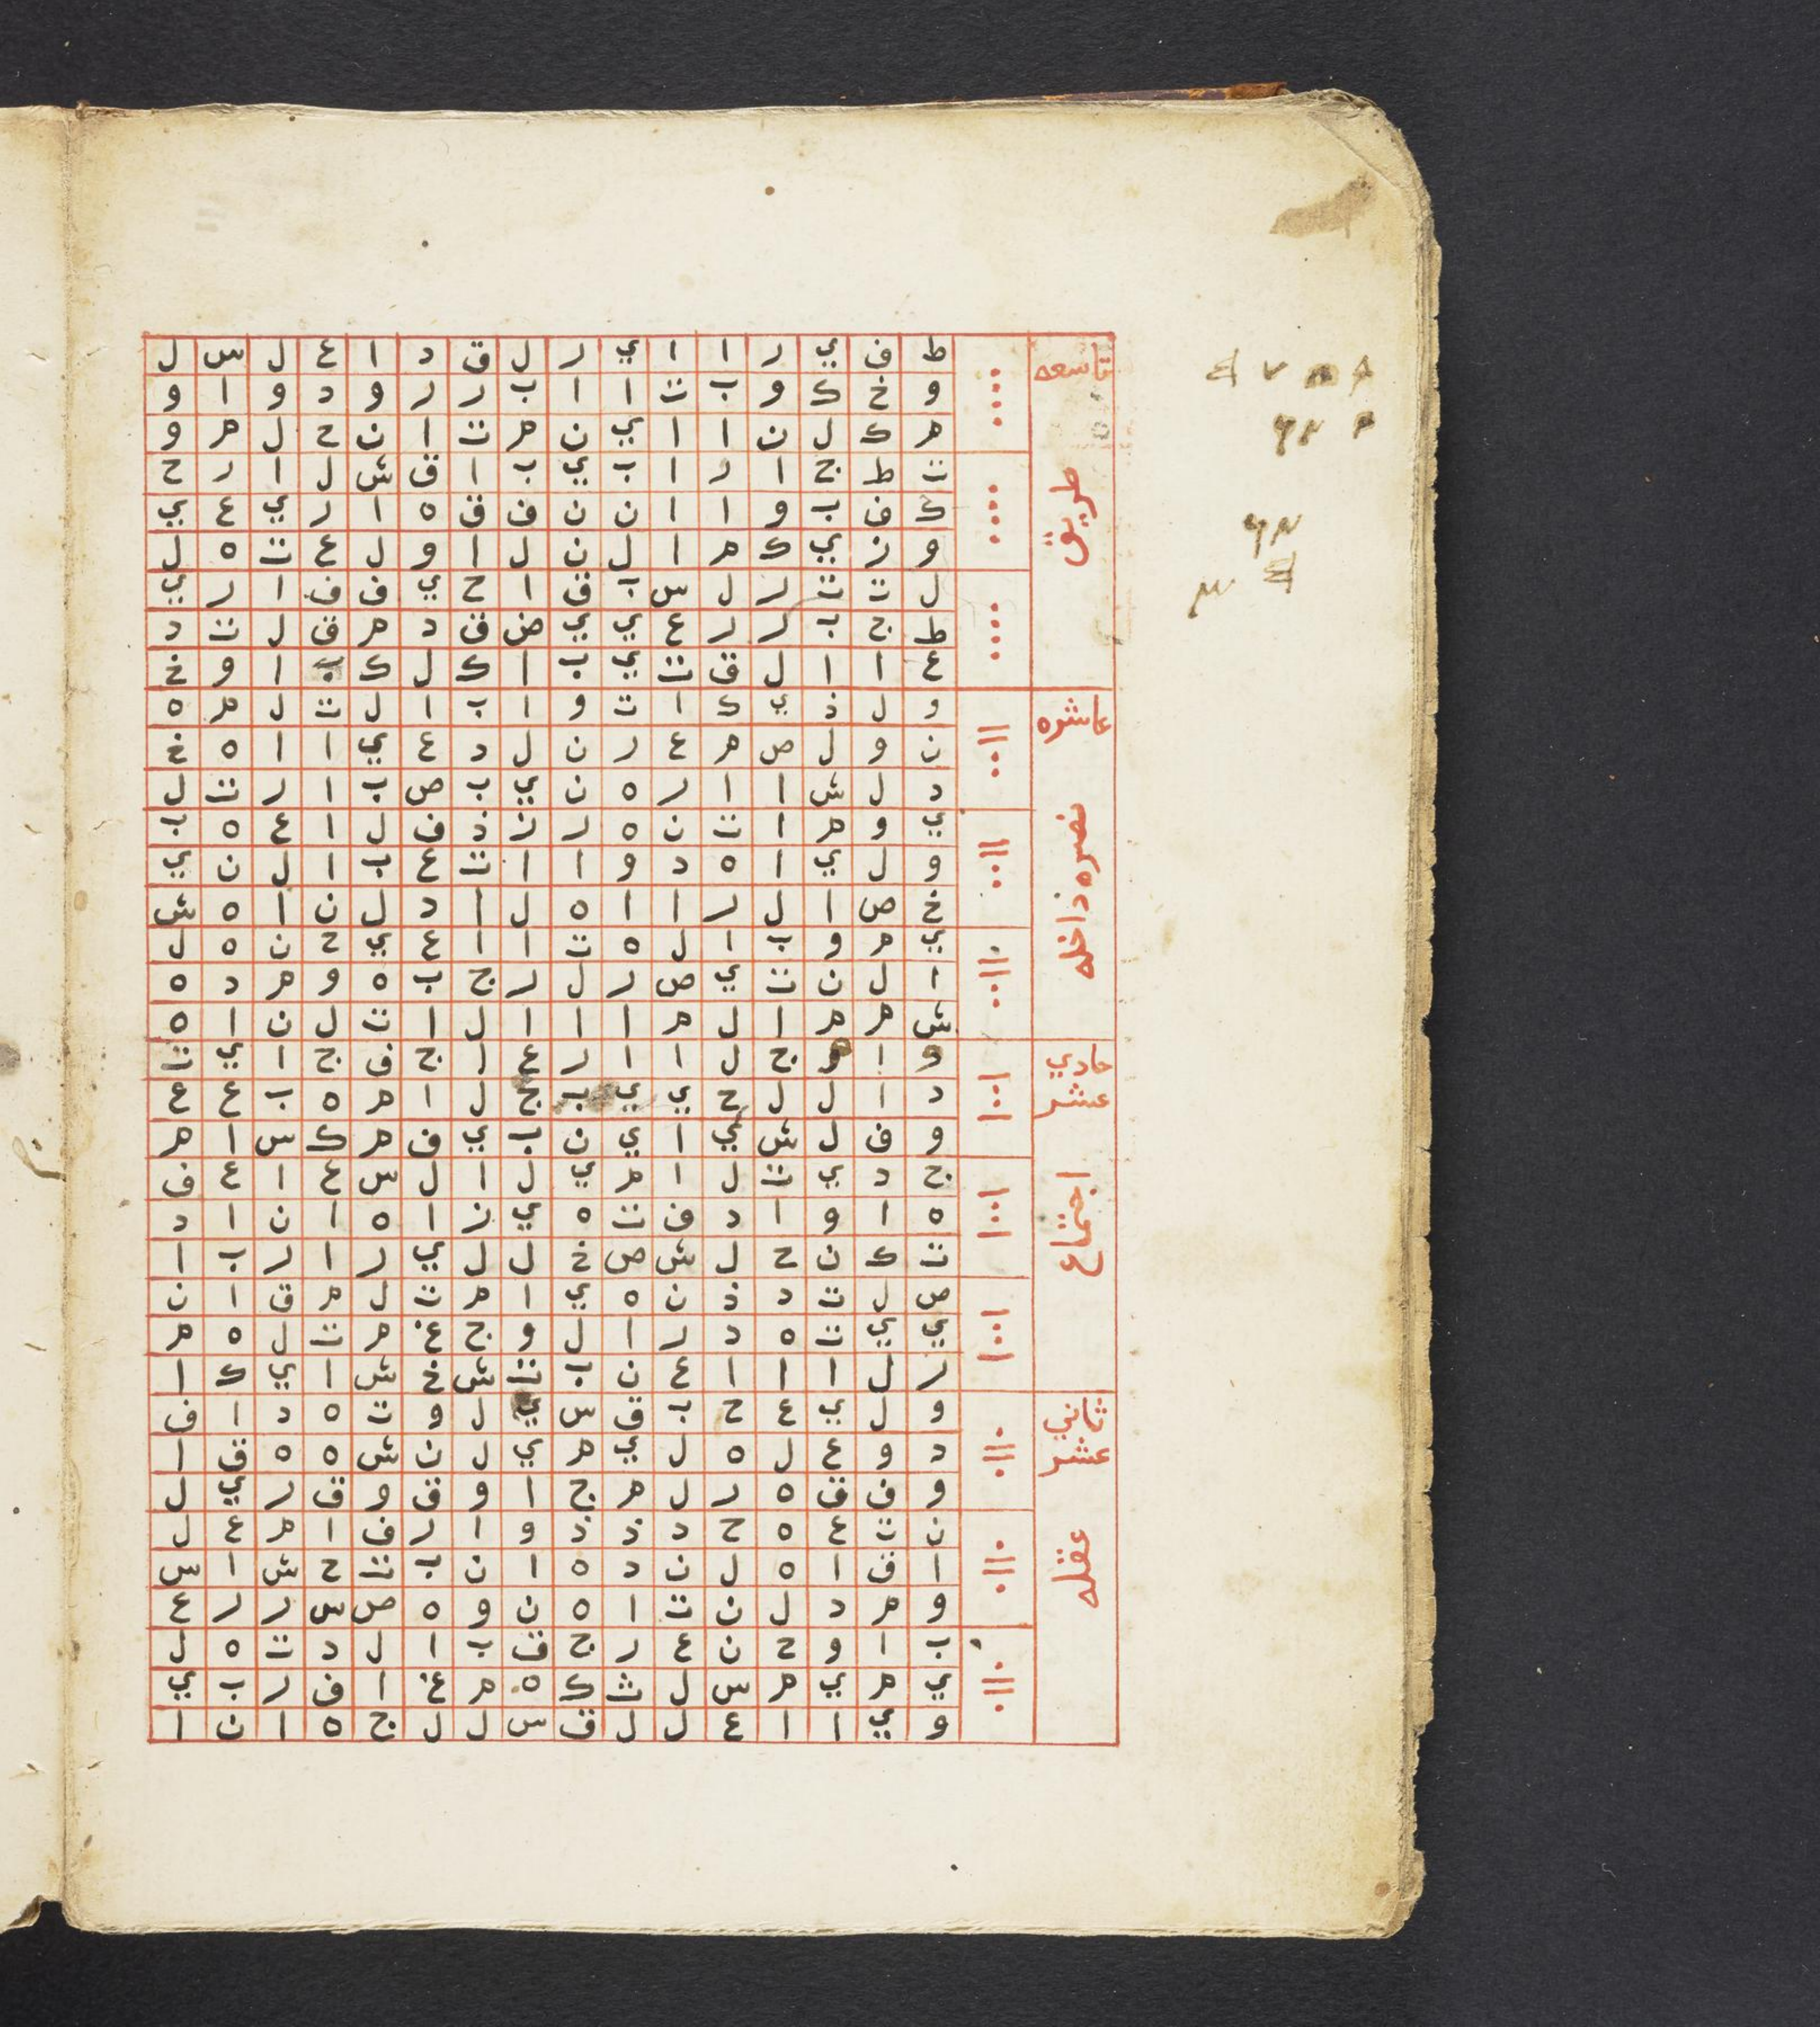 تاسعه
طريق
ط ف ي ر ا ا ي ر ل ق د ا ع ل س ل
و خ ك و ب ت ا ا ب ر ر و د و ا و
م ك ل ن ا ا ي ن م ت ا ن ح ل م و
ت ط ج ا ر ا ب ي ب ا ق ش ل ا ر ح
ك ف ب و ا ا ن ن ف ق ه ا ر ي ع ي
و ز ي ك م ا ل ن ل ا و ل ع ت ه ل
ل ت ت ر ل س ب ق ا ح ي ف ف ا ر ي
ط ج ب ر ر ع ي ي ض ق د م ق ل ت د
ع ا ا ل ق ت ي ب ا ك ل ك ب ا و خ
عاشره
نصره داخله
و ل ذ ي ك ا ت و ا ب ا ل ت ل م ه
ن و ل ص م ع ر ن ل د ع ي ا ا ه خ
د ل ش ا ا ر ه ن ي ب ص ب ا ر ت ل
ي و م ا ت ن ه ر ز ذ ف ل ا ع ه ب
و ل ي ا ه د و ا ا ت ع ب ا ل ن ي
خ ص ا ل ر ا ا ه ل ا د ل ن ا ه ش
ي م و ب ا ل ه ت ا ا ع ي ح ن ه ل
ا ل ن ت ي ص ر ل ر ج ب ه و م د ه
ش م م ا ل م ا ا ا ل ا ت ل ن ا ه
حادي عشر
اجتماع
و ا و ج ل ا ا ر ع ا ج ف ج ا ي ت
د ا ل ل ح ي ي ب ج ل ا م ه ب ع ع
و ف ل ش ي ا ي ن ب ي ف م ك س ا م
ج د ي ت ل ا م ي ل ا ل س ع ا ع ف
ه ا و ا د ف ت ه ي ز ا ه ا ن ا د
ت ك ن ح ل ش ص خ ل ل ي ر ا ر ب ا
ص ل ت د ذ ن ه ي ا م ت ل م ق ا ن
ي ي ت ه د ر ا ل و ج غ م ت ل ه م
ر ل ا ا ا ع ن ب ت ش خ ش ا ي ك ا
ثاني عشر
عقله
و ل ي ع ح ب ق س ي ل و ت ه د ا ف
د و ع ل ه ل ي م ي ل ن ش ه ه ق ا
و ف ق ه ر ل م ج ا و ق و ق ر ي ل
ن ت ع ه ح د ذ ذ و ا ر ف ا م ع ل
ا ق ا ه ل ن د ه ا ن ب ت ح ش ا س
و م د ل ن ت ا ه ن و ه ص س ر ر ع
ب ا و ح ن ع ر ج ق ب ا ل د ت ه ل
ي م ي م س ل ث ك ه م غ ا ف ر ب ي
و ي ا ا ع ل ل ق س ل ل ج ه ا ن ا